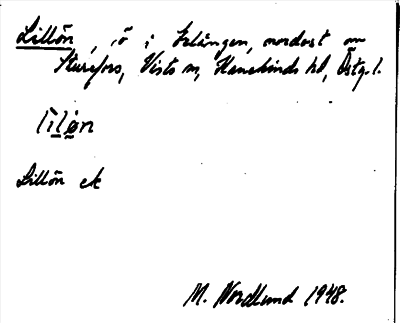 Lillön, ö i Erlången, nordost om
Sturefors, Vists sn, Hanekinds hd, Östg. l.
lìlø̀n
Lillön ek
M. Nordlund 1948.